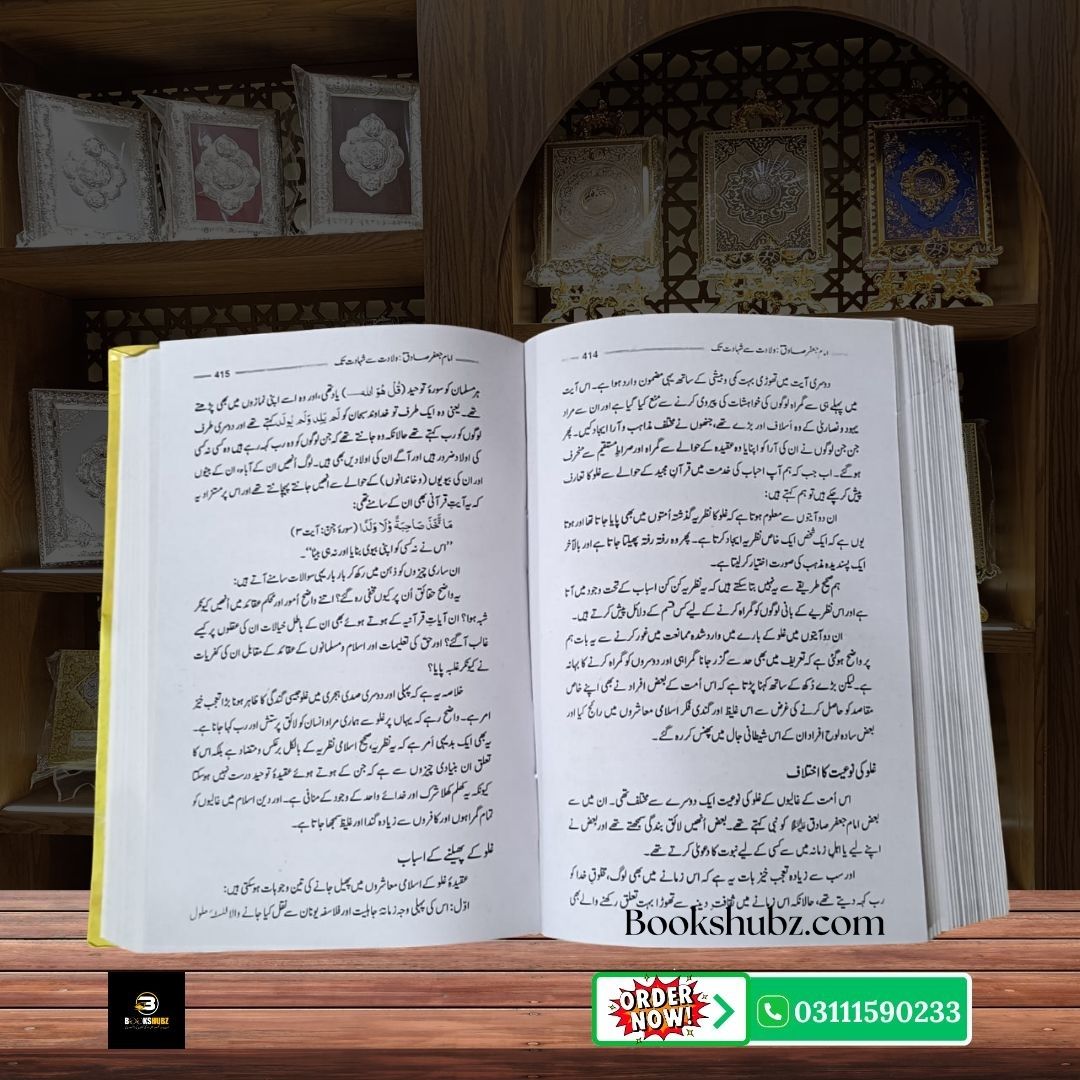 414 امام جعفر صادق: ولادت سے شہادت تک
دوسری آیت میں تھوڑی بہت کمی و بیشی کے ساتھ یہی مضمون وارد ہوا ہے۔ اس آیت
میں پہلے ہی سے گمراہ لوگوں کی خواہشات کی پیروی کرنے سے منع کیا گیا ہے اور ان سے مراد
یہود و نصاریٰ کے وہ اَسلاف اور بڑے تھے، جنھوں نے مختلف مذاہب و آرا ایجاد کیں۔ پھر
جن جن لوگوں نے ان کی آرا کو اپنایا وہ عقیدہ کے حوالے سے گمراہ اور صراطِ مستقیم سے منحرف
ہو گئے۔ اب جب کہ ہم آپ احباب کی خدمت میں قرآنِ مجید کے حوالے سے غلو کا تعارف
پیش کر چکے ہیں تو ہم کہتے ہیں:
ان دو آیتوں سے معلوم ہوتا ہے کہ غلو کا نظریہ گذشتہ اُمتوں میں بھی پایا جاتا تھا اور ہوتا
یوں ہے کہ ایک شخص ایک خاص نظریہ ایجاد کرتا ہے۔ پھر وہ رفتہ رفتہ پھیلتا جاتا ہے اور بالآخر
ایک پسندیدہ مذہب کی صورت اختیار کر لیتا ہے۔
ہم صحیح طریقے سے یہ نہیں بتا سکتے ہیں کہ یہ نظریہ کن کن اسباب کے تحت وجود میں آتا
ہے اور اس نظریے کے بانی لوگوں کو گمراہ کرنے کے لیے کس قسم کے دلائل پیش کرتے ہیں۔
ان دو آیتوں میں غلو کے بارے میں وارد شدہ ممانعت میں غور کرنے سے یہ بات ہم
پر واضح ہو گئی ہے کہ تعریف میں بھی حد سے گزر جانا گمراہی اور دوسروں کو گمراہ کرنے کا بہانہ
ہے۔ لیکن بڑے دُکھ کے ساتھ کہنا پڑتا ہے کہ اس اُمت کے بعض افراد نے بھی اپنے خاص
مقاصد کو حاصل کرنے کی غرض سے اس غلیظ اور گندی فکر اسلامی معاشروں میں رائج کیا اور
بعض سادہ لوح افراد ان کے اس شیطانی جال میں پھنس کر رہ گئے۔
غلو کی نوعیت کا اختلاف
اس اُمت کے غالیوں کے غلو کی نوعیت ایک دوسرے سے مختلف تھی۔ ان میں سے
بعض امام جعفر صادق علیہ السلام کو نبی کہتے تھے۔ بعض اُنھیں لائقِ بندگی سمجھتے تھے اور بعض نے
اپنے لیے یا اہلِ زمانہ میں سے کسی کے لیے نبوت کا دعویٰ کرتے تھے۔
اور سب سے زیادہ تعجب خیز بات یہ ہے کہ اس زمانے میں بھی لوگ، مخلوقِ خدا کو
رب کہہ دیتے تھے، حالانکہ اس زمانے میں ثقافتِ دینیہ سے تھوڑا بہت تعلق رکھنے والے بھی
امام جعفر صادق: ولادت سے شہادت تک 415
ہر مسلمان کو سورۂ توحید (قُلْ هُوَ اللّٰهُ ــــ) یاد تھی، اور وہ اسے اپنی نمازوں میں بھی پڑھتے
تھے۔ یعنی وہ ایک طرف تو خداوند سبحان کو لَمْ يَلِدْ وَلَمْ يُولَدْ کہتے تھے اور دوسری طرف
لوگوں کو رب کہتے تھے حالانکہ وہ جانتے تھے کہ جن لوگوں کو وہ رب کہہ رہے ہیں وہ کسی نہ کسی
کی اولاد ضرور ہیں اور آگے ان کی اولادیں بھی ہیں۔ لوگ اُنھیں ان کے آباء، ان کے بیٹوں
اور ان کی بیویوں (و خاندانوں) کے حوالے سے اُنھیں جانتے پہچانتے تھے اور اس پر مستزاد یہ
کہ یہ آیتِ قرآنی بھی ان کے سامنے تھی:
مَا اتَّخَذَ صَاحِبَةً وَّلَا وَلَدًا (سورۂ جن: آیت ۳)
”اس نے نہ کسی کو اپنی بیوی بنایا اور نہ ہی بیٹا“۔
ان ساری چیزوں کو ذہن میں رکھ کر بار بار یہی سوالات سامنے آتے ہیں:
یہ واضح حقائق اُن پر کیوں مخفی رہ گئے؟ اتنے واضح اُمور اور محکم عقائد میں اُنھیں کیونکر
شبہ ہوا؟ ان آیاتِ قرآنیہ کے ہوتے ہوئے بھی ان کے باطل خیالات ان کی عقلوں پر کیسے
غالب آ گئے؟ اور حق کی تعلیمات اور اسلام و مسلمانوں کے عقائد کے مقابل ان کی کفریات
نے کیونکر غلبہ پایا؟
خلاصہ یہ ہے کہ پہلی اور دوسری صدی ہجری میں غلو جیسی گندگی کا ظاہر ہونا بڑا تعجب خیز
امر ہے۔ واضح رہے کہ یہاں پر غلو سے ہماری مراد انسان کو لائقِ پرستش اور رب کہا جانا ہے۔
یہ بھی ایک بدیہی اَمر ہے کہ یہ نظریہ، صحیح اسلامی نظریہ کے بالکل برعکس و متضاد ہے بلکہ اس کا
تعلق ان بنیادی چیزوں سے ہے کہ جن کے ہوتے ہوئے عقیدۂ توحید درست نہیں ہو سکتا
کیونکہ یہ کھلم کھلا شرک اور خدائے واحد کے وجود کے منافی ہے۔ اور دین اسلام میں غالیوں کو
تمام گمراہوں اور کافروں سے زیادہ گندا اور غلیظ سمجھا جاتا ہے۔
غلو کے پھیلنے کے اسباب
عقیدۂ غلو کے اسلامی معاشروں میں پھیل جانے کی تین وجوہات ہو سکتی ہیں:
اوّل: اس کی پہلی وجہ زمانۂ جاہلیت اور فلاسفہ یونان سے نقل کیا جانے والا فلسفۂ حلول
Bookshubz.com
BOOKSHUBZ
ORDER NOW!
03111590233